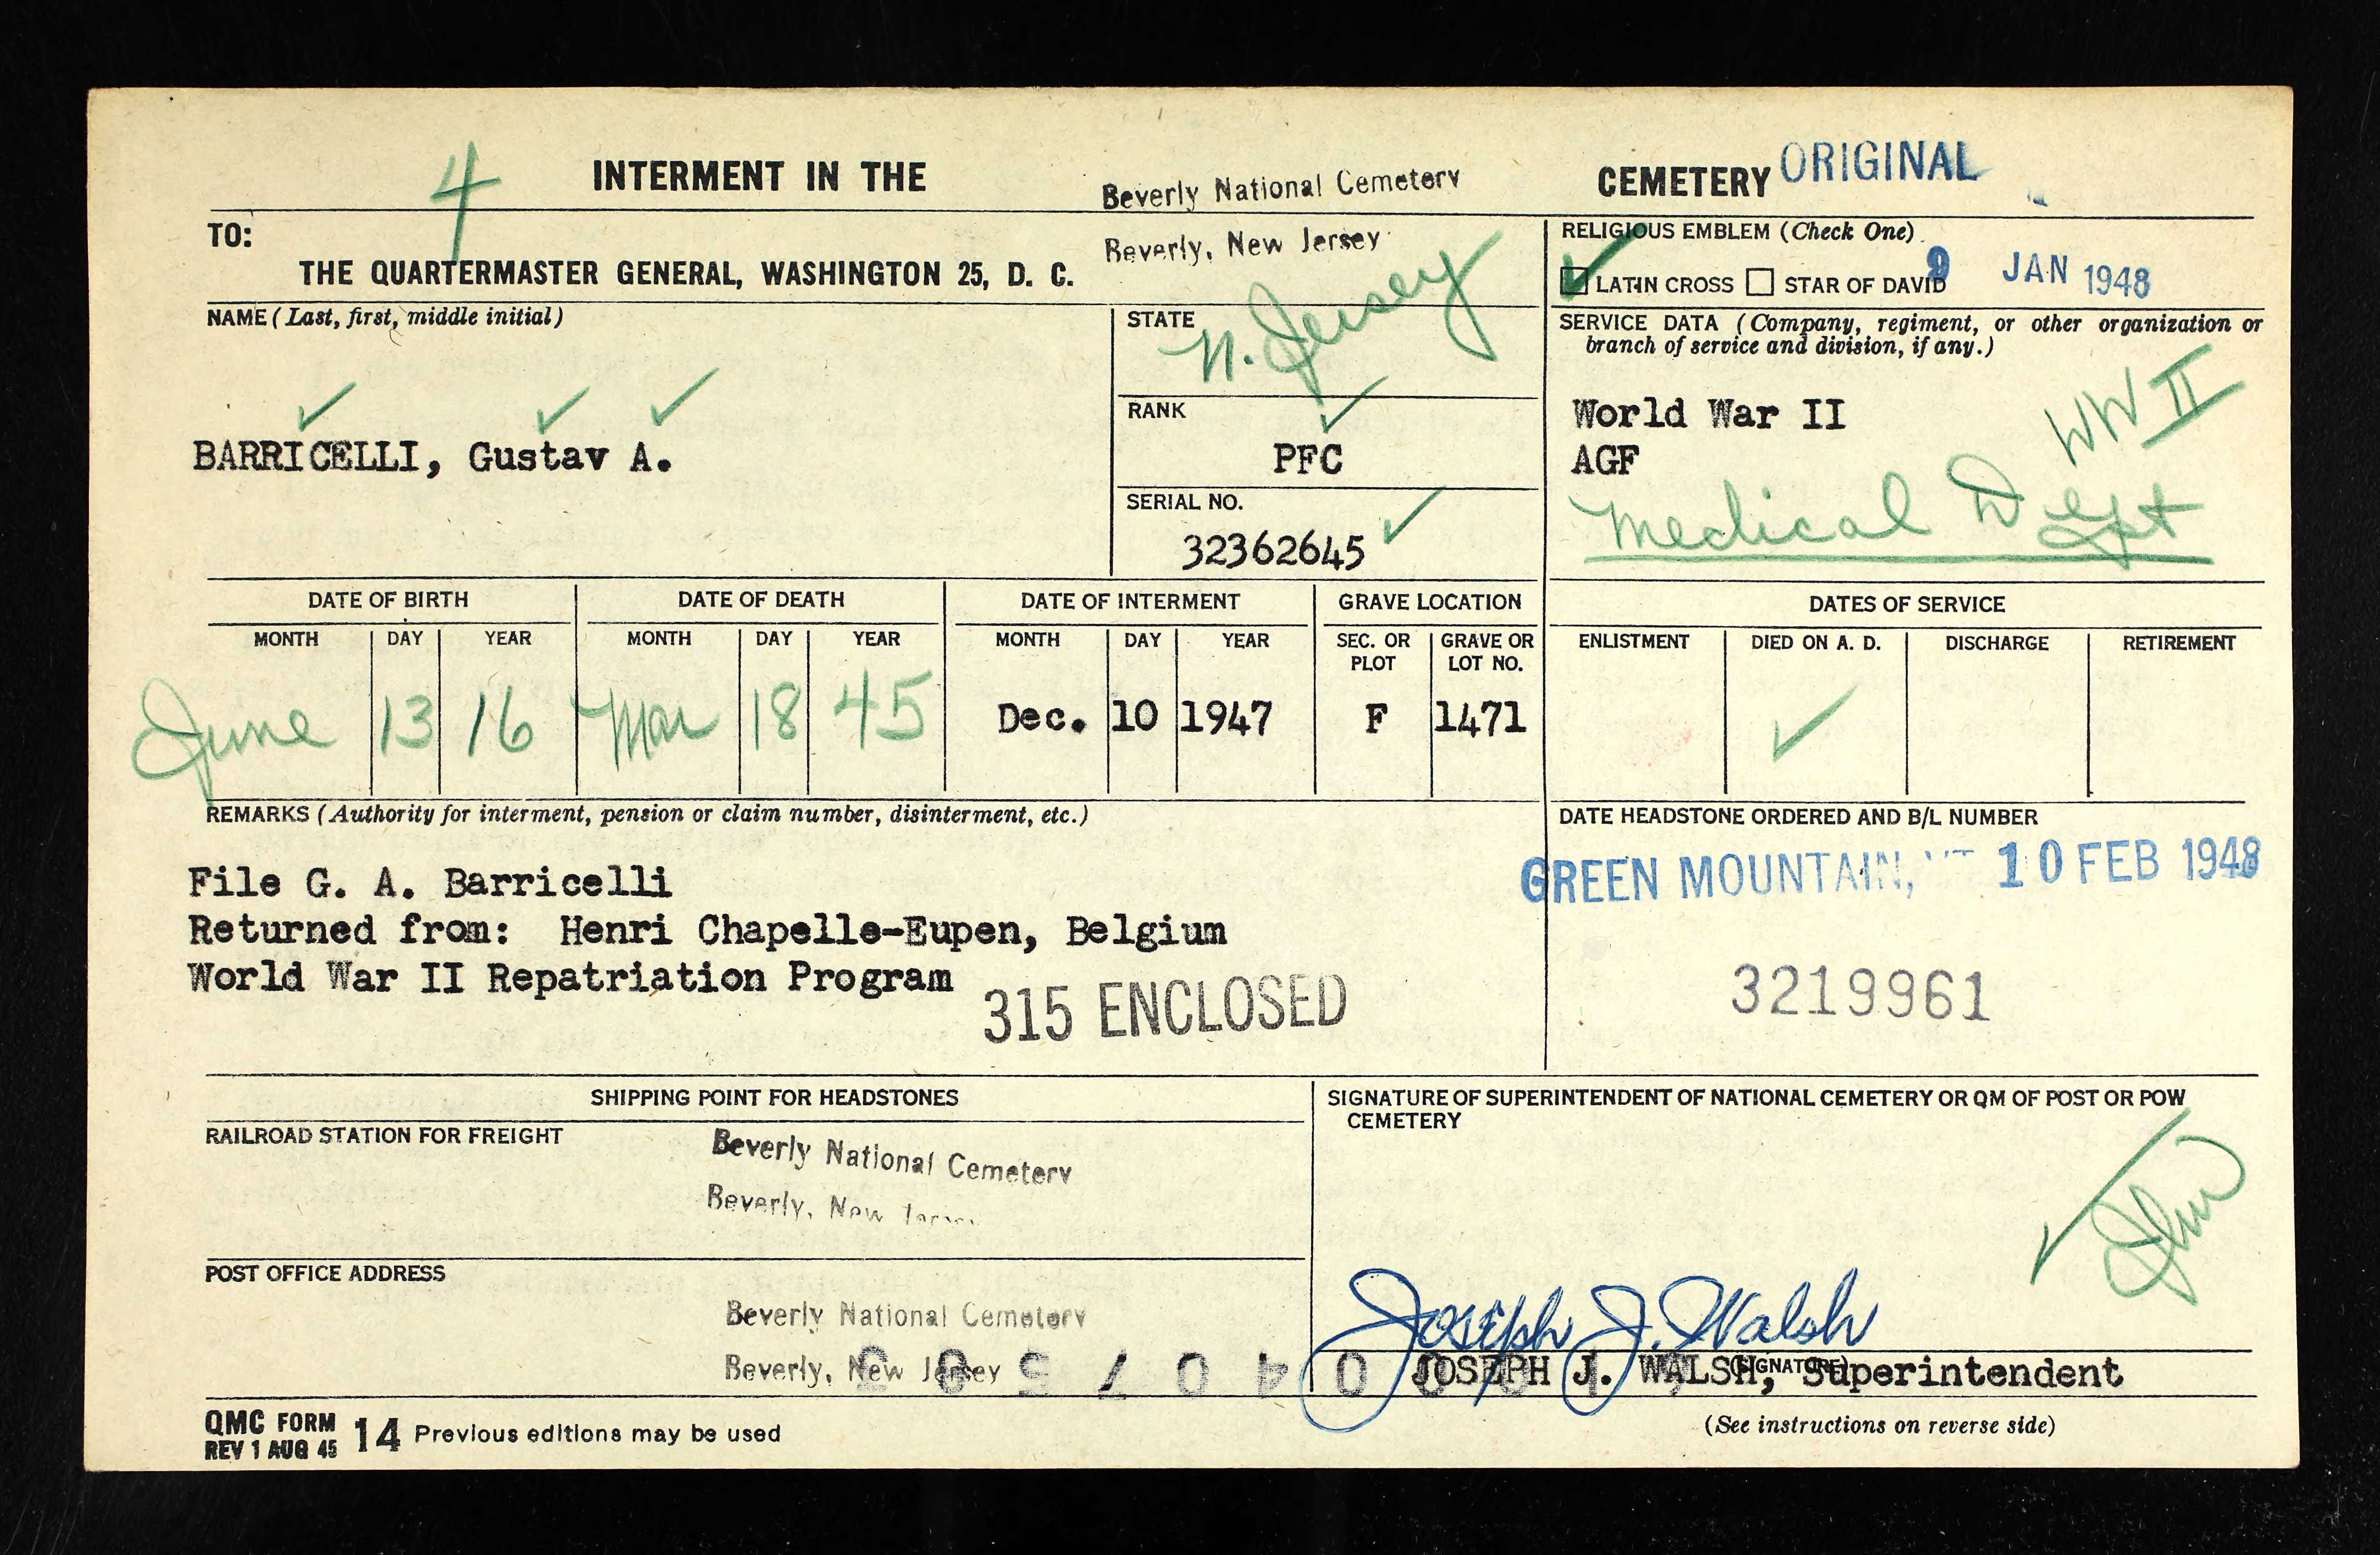 4
INTERMENT IN THE Beverly National Cemetery CEMETERY ORIGINAL
TO:
THE QUARTERMASTER GENERAL, WASHINGTON 25, D. C.
Beverly, New Jersey
RELIGIOUS EMBLEM (Check One)
LATIN CROSS STAR OF DAVID
9 JAN 1948
NAME (Last, first, middle initial)
BARRICELLI, Gustav A.
STATE
N. Jersey
RANK
PFC
SERIAL NO.
32362645
SERVICE DATA (Company, regiment, or other organization or
branch of service and division, if any.)
World War II
WW II
AGF
Medical Dept
DATE OF BIRTH DATE OF DEATH DATE OF INTERMENT GRAVE LOCATION DATES OF SERVICE
MONTH DAY YEAR MONTH DAY YEAR MONTH DAY YEAR SEC. OR PLOT GRAVE OR LOT NO. ENLISTMENT DIED ON A. D. DISCHARGE RETIREMENT
June 13 16 Mar 18 45 Dec. 10 1947 F 1471
REMARKS (Authority for interment, pension or claim number, disinterment, etc.)
File G. A. Barricelli
Returned from: Henri Chapelle-Eupen, Belgium
World War II Repatriation Program
315 ENCLOSED
DATE HEADSTONE ORDERED AND B/L NUMBER
GREEN MOUNTAIN, 10 FEB 1948
3219961
SHIPPING POINT FOR HEADSTONES
RAILROAD STATION FOR FREIGHT
Beverly National Cemetery
Beverly, New
POST OFFICE ADDRESS
Beverly National Cemetery
Beverly, New Jersey
SIGNATURE OF SUPERINTENDENT OF NATIONAL CEMETERY OR QM OF POST OR POW
CEMETERY
Joseph J. Walsh
(SIGNATURE)
JOSEPH J. WALSH, Superintendent
QMC FORM
REV 1 AUG 45 14 Previous editions may be used
(See instructions on reverse side)